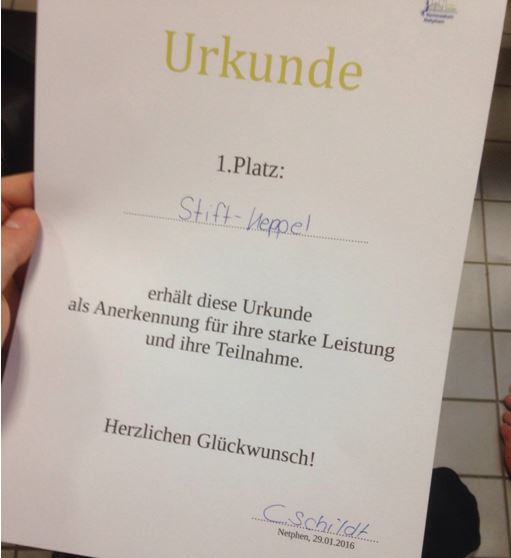 Gymnasium
Netphen
Urkunde
1.Platz:
Stift-Keppel
erhält diese Urkunde
als Anerkennung für ihre starke Leistung
und ihre Teilnahme.
Herzlichen Glückwunsch!
C Schildt
Netphen, 29.01.2016